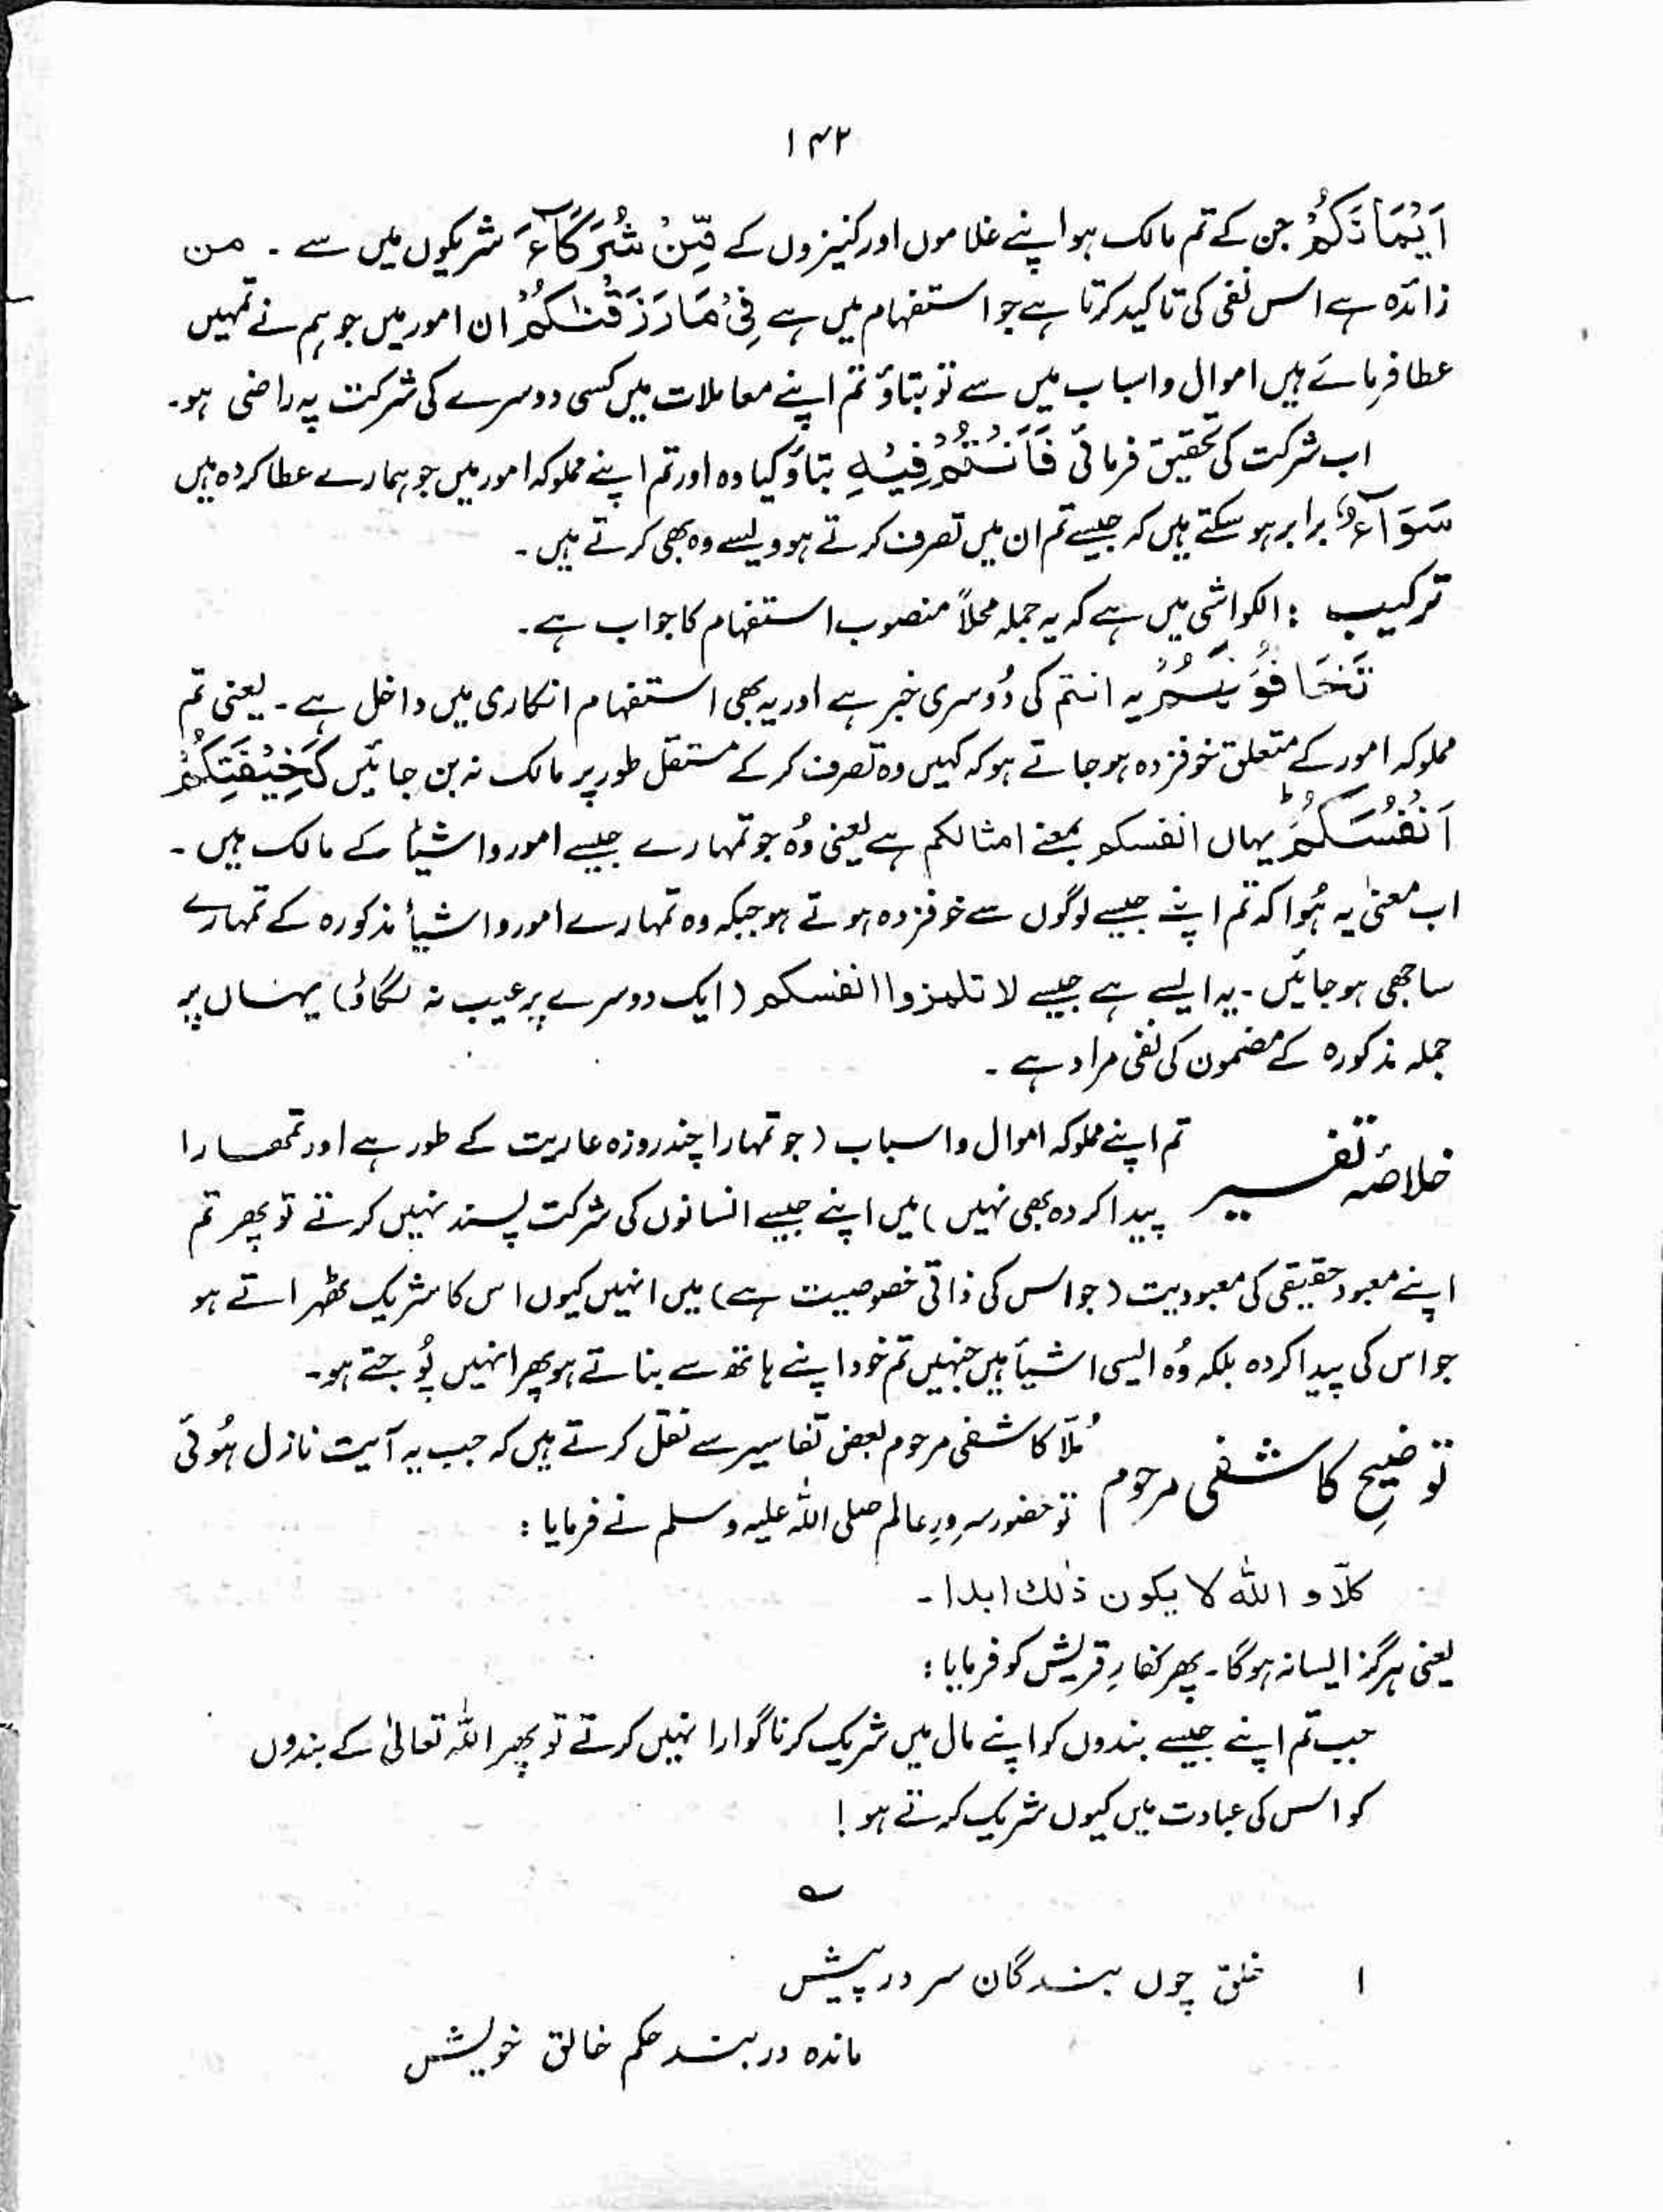 ۱۴۲
اَيْمَانُكُمْ جن کے تم مالک ہو اپنے غلاموں اور کنیزوں کے مِّنْ شُرَكَآءَ شریکوں میں سے ۔ من
زائدہ ہے اس نفی کی تاکید کرتا ہے جو استفہام میں ہے فِىْ مَا رَزَقْنٰكُمْ ان امور میں جو ہم نے تمہیں
عطا فرمائے ہیں اموال و اسباب میں سے تو بتاؤ تم اپنے معاملات میں کسی دوسرے کی شرکت پہ راضی ہو۔
اب شرکت کی تحقیق فرمائی فَاَنْتُمْ فِيْهِ بتاؤ کیا وہ اور تم اپنے مملوکہ امور میں جو ہمارے عطا کردہ ہیں
سَوَآءٌ برابر ہو سکتے ہیں کہ جیسے تم ان میں تصرف کرتے ہو ویسے وہ بھی کرتے ہیں ۔
ترکیب : الکواشی میں ہے کہ یہ جملہ محلاً منصوب استفہام کا جواب ہے ۔
تَخَافُوْنَهُمْ یہ انتم کی دُوسری خبر ہے اور یہ بھی استفہام انکاری میں داخل ہے ۔ یعنی تم
مملوکہ امور کے متعلق خوفزدہ ہو جاتے ہو کہ کہیں وہ تصرف کر کے مستقل طور پر مالک نہ بن جائیں كَخِيْفَتِكُمْ
اَنْفُسَكُمْ ؕ یہاں انفسکم بمعنے امثالکم ہے یعنی وُہ جو تمہارے جیسے امور و اشیأ کے مالک ہیں ۔
اب معنیٰ یہ ہُوا کہ تم اپنے جیسے لوگوں سے خوفزدہ ہوتے ہو جبکہ وہ تمہارے امور و اشیأ مذکورہ کے تمہارے
ساجھی ہو جائیں ۔ یہ ایسے ہے جیسے لا تلمزوا انفسکم ( ایک دوسرے پر عیب نہ لگاؤ ) یہاں پر
جملہ مذکورہ کے مضمون کی نفی مراد ہے ۔
خلاصۂ تفسیر تم اپنے مملوکہ اموال و اسباب ( جو تمہارا چند روزہ عاریت کے طور ہے اور تمھارا
پیدا کردہ بھی نہیں ) میں اپنے جیسے انسانوں کی شرکت پسند نہیں کرتے تو پھر تم
اپنے معبود حقیقی کی معبودیت ( جو اس کی ذاتی خصوصیت ہے ) میں انہیں کیوں اس کا شریک ٹھہراتے ہو
جو اس کی پیدا کردہ بلکہ وُہ ایسی اشیأ ہیں جنہیں تم خود اپنے ہاتھ سے بناتے ہو پھر انہیں پُوجتے ہو۔
توضیحِ کاشفی مرحوم مُلّا کاشفی مرحوم بعض تفاسیر سے نقل کرتے ہیں کہ جب یہ آیت نازل ہُوئی
تو حضور سرورِ عالم صلی اللہ علیہ وسلم نے فرمایا :
کلّا و اللہ لا یکون ذٰلك ابدا ۔
یعنی ہرگز ایسا نہ ہو گا ۔ پھر کفارِ قریش کو فرمایا :
جب تم اپنے جیسے بندوں کو اپنے مال میں شریک کرنا گوارا نہیں کرتے تو پھر اللہ تعالیٰ کے بندوں
کو اس کی عبادت میں کیوں شریک کرتے ہو !
؎
۱ خلق چوں بندگان سر در پیش
ماندہ در بند حکم خالق خویش